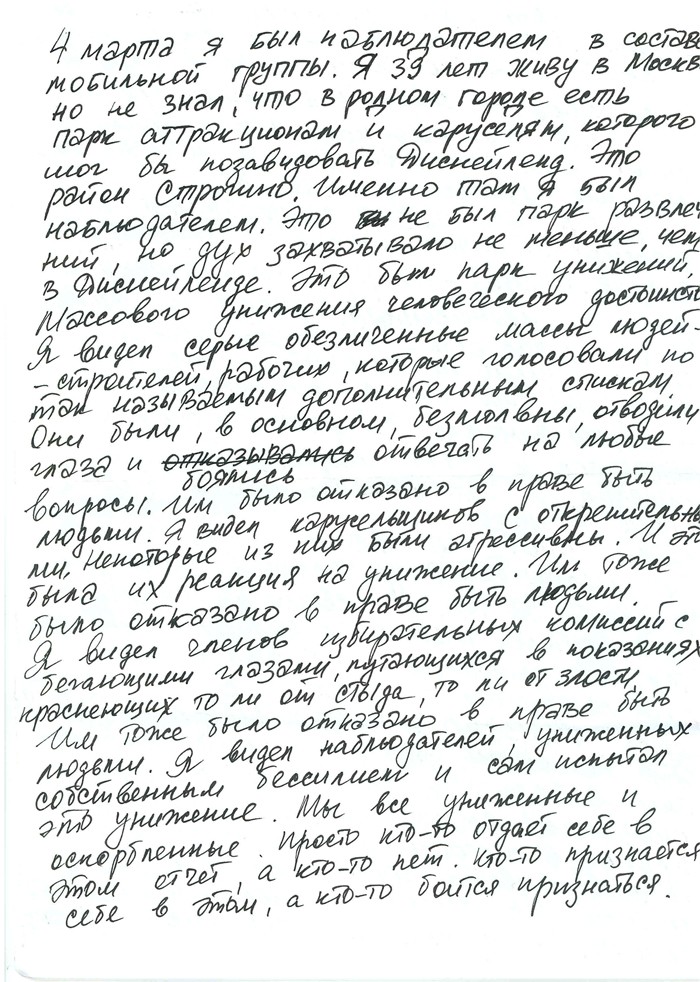 4 марта я был наблюдателем в составе
мобильной группы. Я 39 лет живу в Москв
но не знал, что в родном городе есть
парк аттракционам и каруселям, которого
мог бы позавидовать Диснейленд. Это
район Строгино. Именно там я был
наблюдателем. Это не был парк развлеч
ний, но дух захватывало не меньше, чем
в Диснейленде. Это был парк унижений.
Массового унижения человеческого достоинств
Я видел серые обезличенные массы людей-
-строителей, рабочих, которые голосовали по
так называемым дополнительным спискам.
Они были, в основном, безмолвны, отводили
глаза и отказывались отвечать на любые
боялись
вопросы. Им было отказано в праве быть
людьми. Я видел карусельщиков с открепительны
ми. Некоторые из них были агрессивны. И это
была их реакция на унижение. Им тоже
было отказано в праве быть людьми.
Я видел членов избирательных комиссий с
бегающими глазами, путающихся в показаниях
краснеющих то ли от стыда, то ли от злости
Им тоже было отказано в праве быть
людьми. Я видел наблюдателей, униженных
собственным бессилием и сам испытал
это унижение. Мы все униженные и
оскорбленные. Просто кто-то отдаёт себе в
этом отчёт, а кто-то нет. Кто-то признается
себе в этом, а кто-то боится признаться.